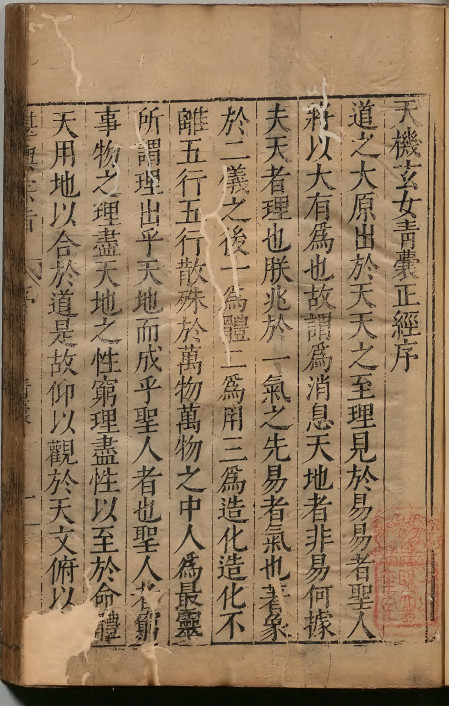 天機玄女青囊正經序
道之大原出於天天之至理見於易易者聖人
以大有為也故謂為消息天地者非易何據
夫天者理也朕兆於一氣之先易者氣也著象
於二儀之後一為體二為用三為造化造化不
離五行五行散殊於萬物萬物之中人為最靈
所謂理出乎天地而成乎聖人者也聖人者窮
事物之理盡天地之性窮理盡性以至於命體
天用地以合於道是故仰以觀於天文俯以
序